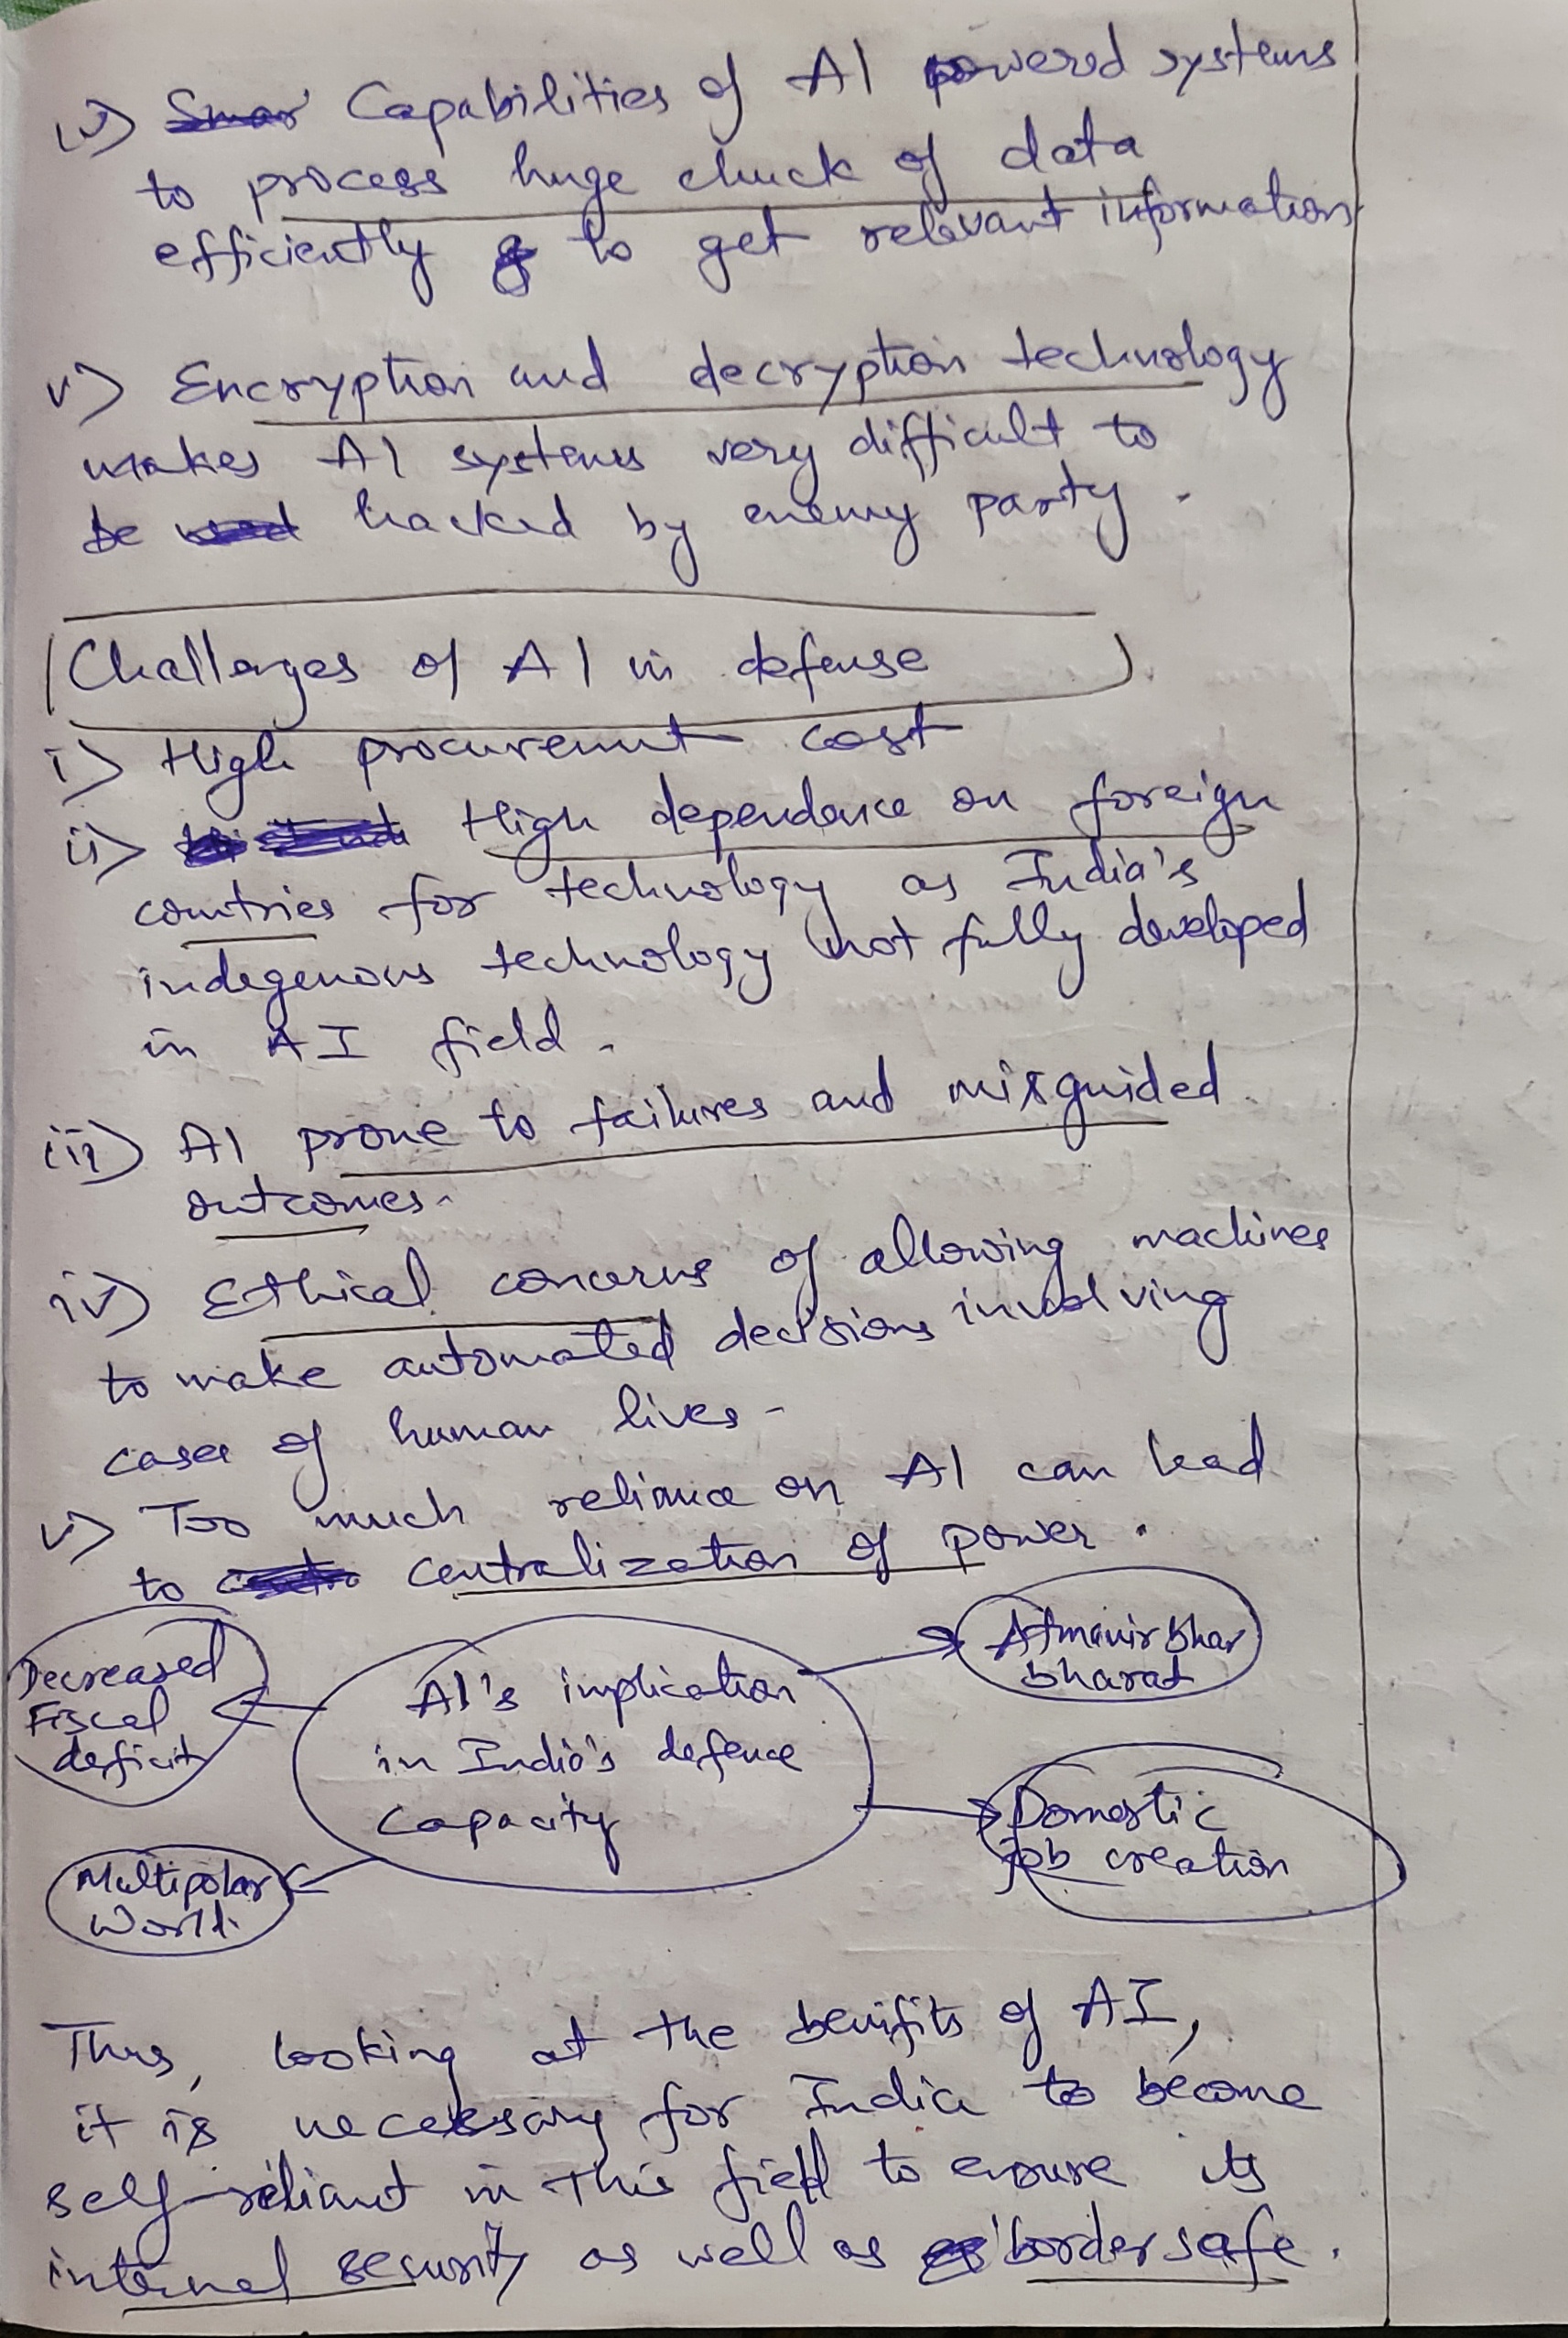 iv) Capabilities of AI powered systems
to process huge chuck of data
efficiently to get relevant information
v) Encryption and decryption technology
makes AI systems very difficult to
be hacked by enemy party.
Challenges of AI in defense
i) High procurement cost
ii) High dependance on foreign
countries for technology as India's
indegenous technology not fully developed
in AI field.
iii) AI prone to failures and misguided
outcomes.
iv) Ethical concerns of allowing machines
to make automated decisions involving
cases of human lives.
v) Too much reliance on AI can lead
to centralization of power.
Decreased
Fiscal
deficit
AI's implication
in India's defence
capacity
Atmanirbhar
bharat
Domestic
job creation
Multipolar
World.
Thus, looking at the benifits of AI,
it is necessary for India to become
self-reliant in this field to ensure its
internal security as well as border safe.